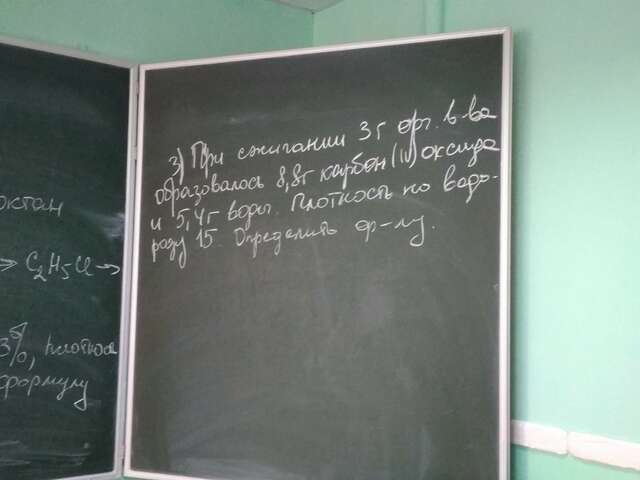 октан
→ C₂H₅Cl →
3%, плотнос
формулу
3) При сжигании 3г орг. в-ва
образовалось 8,8г карбон (IV) оксида
и 5,4г воды. Плотность по водо-
роду 15. Определить ф-лу.